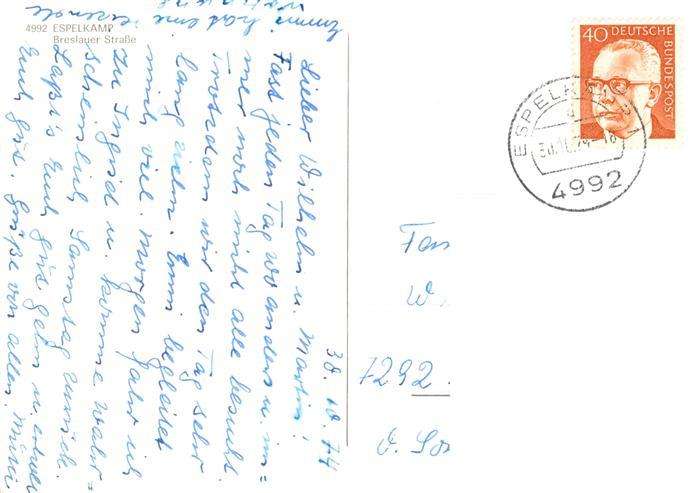 4992 ESPELKAMP
Breslauer Straße
30.10.74
Lieber Wilhelm u. Martin!
Fast jeden Tag wo anders u. im=
mer noch nicht alle besucht.
Trotzdem wird der Tag sehr
lang vielen. Emmi begleitet
mich viel. Morgen fahr ich
zu Ingrid u. komme wahr=
scheinlich Samstag zurück.
Laßt's Euch gut gehn u.
Euch gut. Grüße von allen.
Emmi hat eine
40 DEUTSCHE
BUNDESPOST
ESPELKAMP
4992
Fam
W
7292